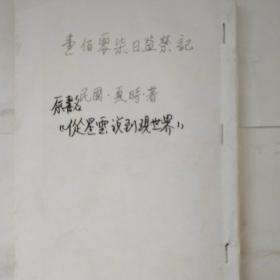 壹佰零柒日蓝禁記
民國·夏時·著
原書名
"從星雲談到現世界"